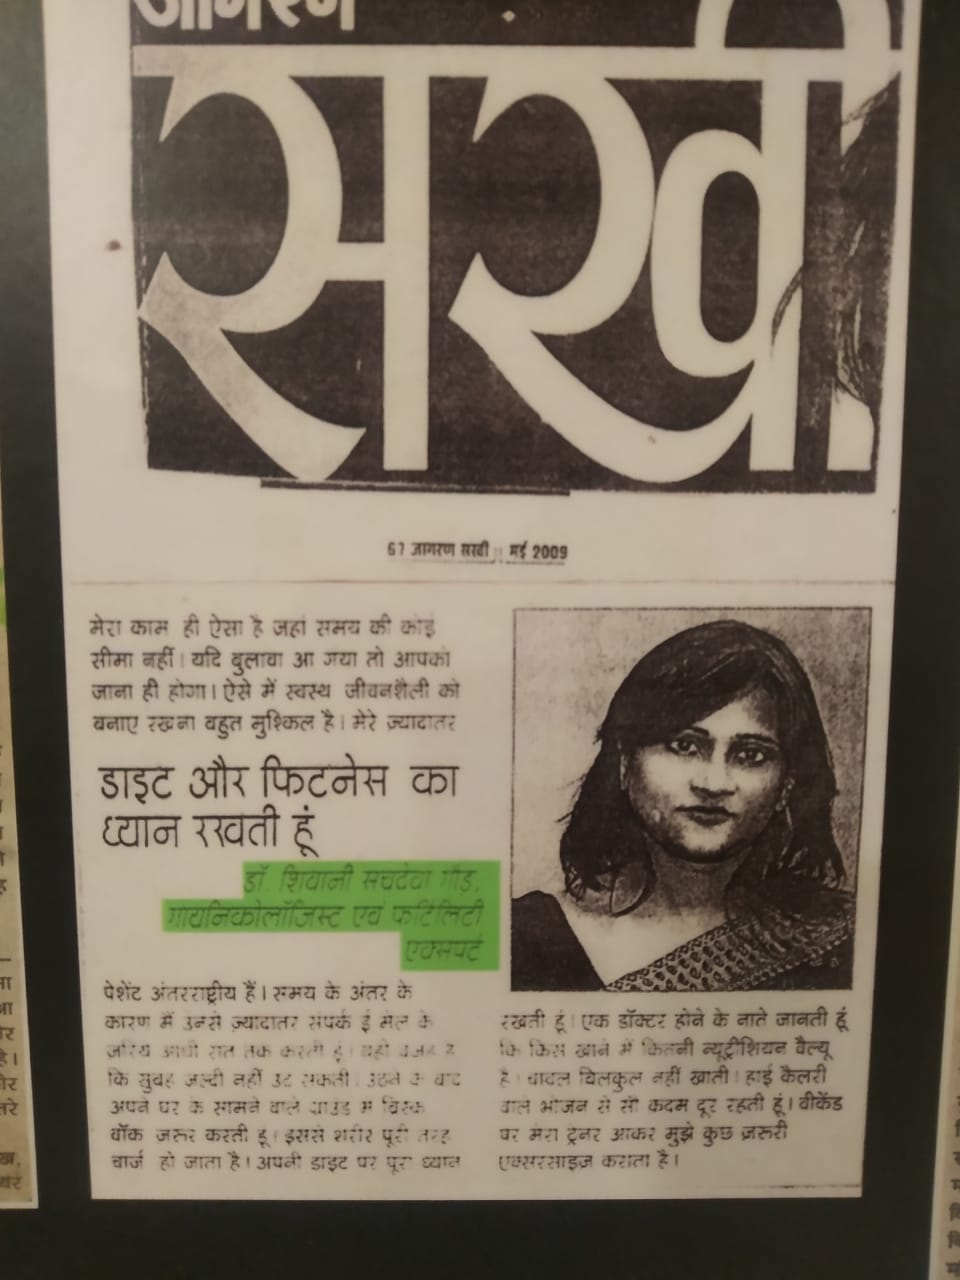 जागरण
सखी
67 जागरण सखी || मई 2009
मेरा काम ही ऐसा है जहां समय की कोई
सीमा नहीं। यदि बुलावा आ गया तो आपको
जाना ही होगा। ऐसे में स्वस्थ जीवनशैली को
बनाए रखना बहुत मुश्किल है। मेरे ज़्यादातर
डाइट और फिटनेस का
ध्यान रखती हूं
डॉ. शिवानी सचदेवा गौड़,
गायनिकोलॉजिस्ट एवं फर्टिलिटी
एक्सपर्ट
पेशेंट अंतरराष्ट्रीय हैं। समय के अंतर के
कारण मैं उनसे ज़्यादातर संपर्क ई मेल के
जरिये आधी रात तक करती हूं। यही वजह है
कि सुबह जल्दी नहीं उठ सकती। उठने के बाद
अपने घर के सामने वाले ग्राउंड में ब्रिस्क
वॉक जरूर करती हूं। इससे शरीर पूरी तरह
चार्ज हो जाता है। अपनी डाइट पर पूरा ध्यान
रखती हूं। एक डॉक्टर होने के नाते जानती हूं
कि किस खाने में कितनी न्यूट्रीशियन वैल्यू
है। चावल बिलकुल नहीं खाती। हाई कैलरी
वाले भोजन से सौ कदम दूर रहती हूं। वीकेंड
पर मेरा ट्रेनर आकर मुझे कुछ ज़रूरी
एक्सरसाइज़ कराता है।